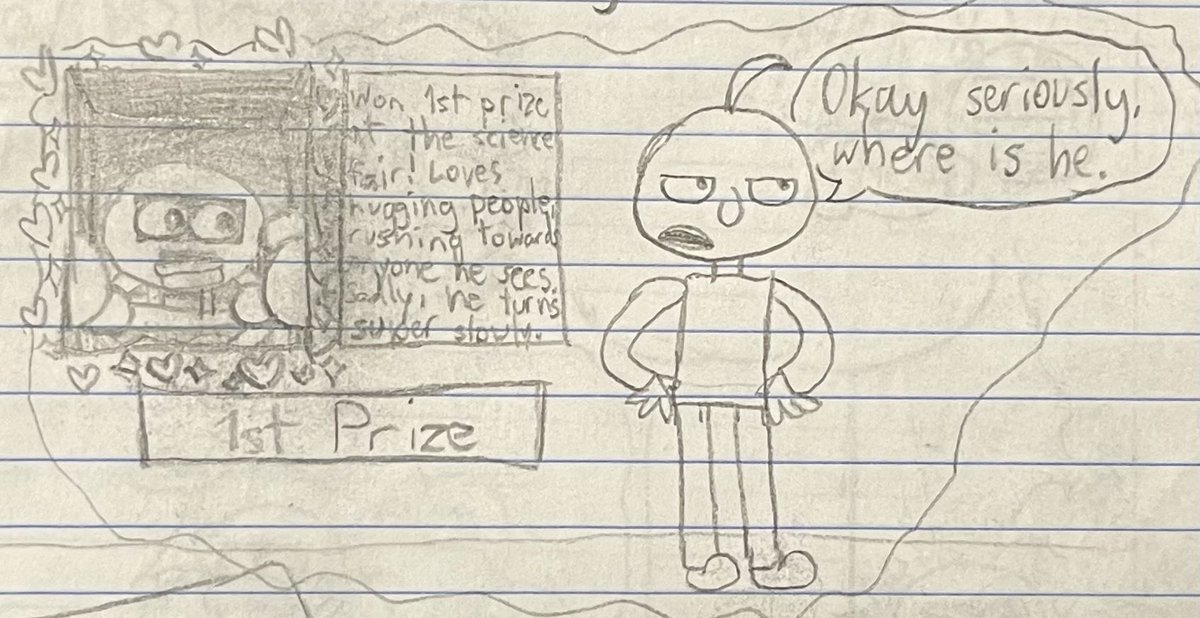 Won 1st prize
at the science
fair! Loves
hugging people,
rushing towards
anyone he sees.
Sadly, he turns
super slowly.
1st Prize
Okay seriously,
where is he.